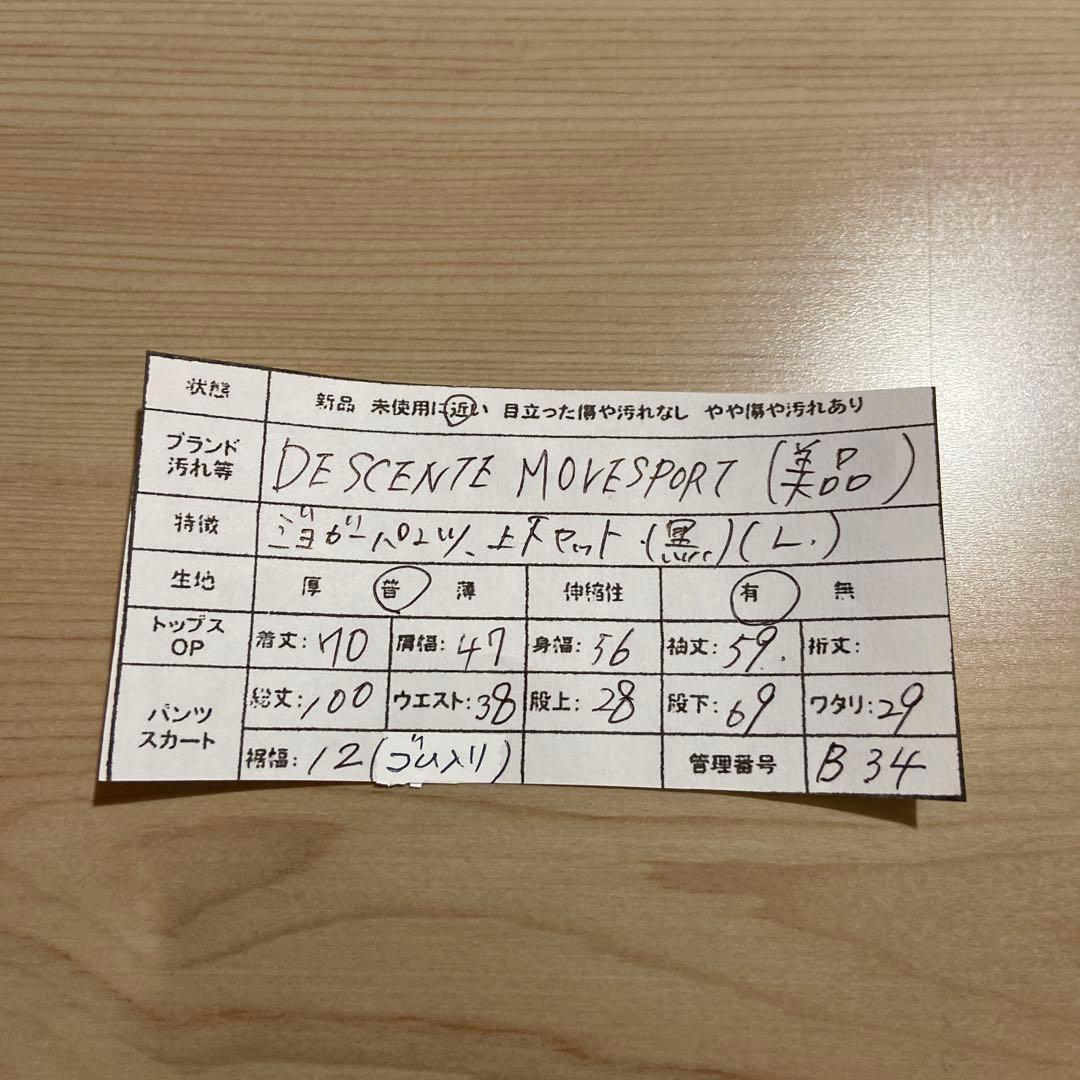 状態 新品 未使用に近い 目立った傷や汚れなし やや傷や汚れあり
ブランド 汚れ等 DESCENTE MOVESPORT (美品)
特徴 ジョガーパンツ、上下セット・(黒)(L.)
生地 厚 普 薄 伸縮性 有 無
トップス OP 着丈: 70 肩幅: 47 身幅: 56 袖丈: 59. 裄丈:
パンツ スカート 総丈: 100 ウエスト: 38 股上: 28 股下: 69 ワタリ: 29
裾幅: 12 (ゴム入り) 管理番号 B 34